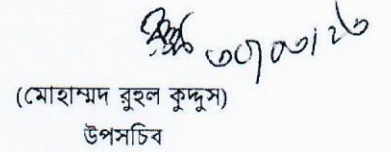 ৩০/০৩/২৬
(মোহাম্মদ রুহুল কুদ্দুস)
উপসচিব